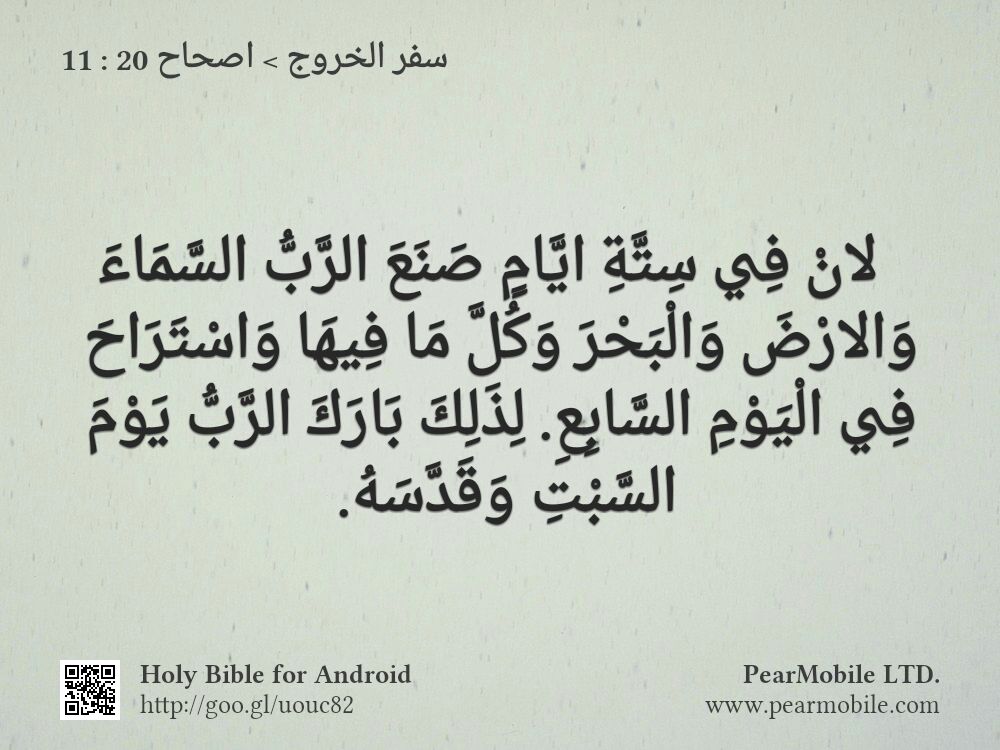 سفر الخروج > اصحاح 20 : 11
لانْ فِي سِتَّةِ ايَّامٍ صَنَعَ الرَّبُّ السَّمَاءَ
وَالارْضَ وَالْبَحْرَ وَكُلَّ مَا فِيهَا وَاسْتَرَاحَ
فِي الْيَوْمِ السَّابِعِ. لِذَلِكَ بَارَكَ الرَّبُّ يَوْمَ
السَّبْتِ وَقَدَّسَهُ.
Holy Bible for Android
http://goo.gl/uouc82
PearMobile LTD.
www.pearmobile.com